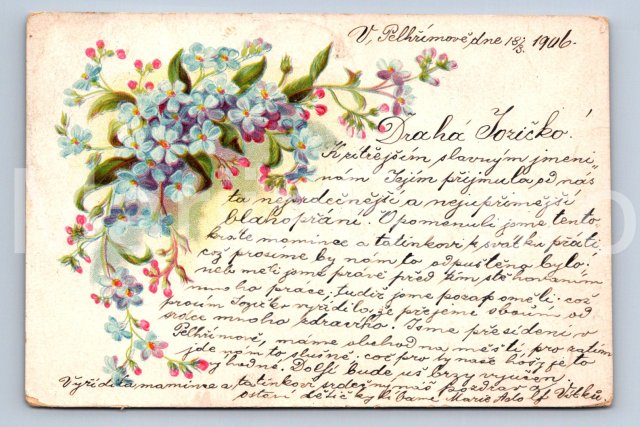 V, Pelhřimově dne 18/3. 1906.
Drahá Jořičko!
K zítřejším slavným jmeni„
nám Jejím přijmula od nás
ta nejsrdečnější a nejupřímější
blahopřání. Opomenuli jsme tento
krate mamince a tatínkovi k svátku přáti
což prosíme by nám to odpuštěno bylo;
neb měli jsme právě před tím stěhováním
mnoho práce, tudíž jsme pozapoměli: což
prosím Jozičko vyřídilo, že přejeme oboum od
srdce mnoho zdravího. Jsme přesídleni v
Pelhřimově, máme obchod na městě, pro zatím
jde nám to slušně; což pro ty naše hochy je to
výhodné. Dolfi bude už brzy vyučen.
Vyřídila mamince a tatínkovi srdečný náš pozdrav a
ostaní dětičky líbané Marie Adolf Vítků